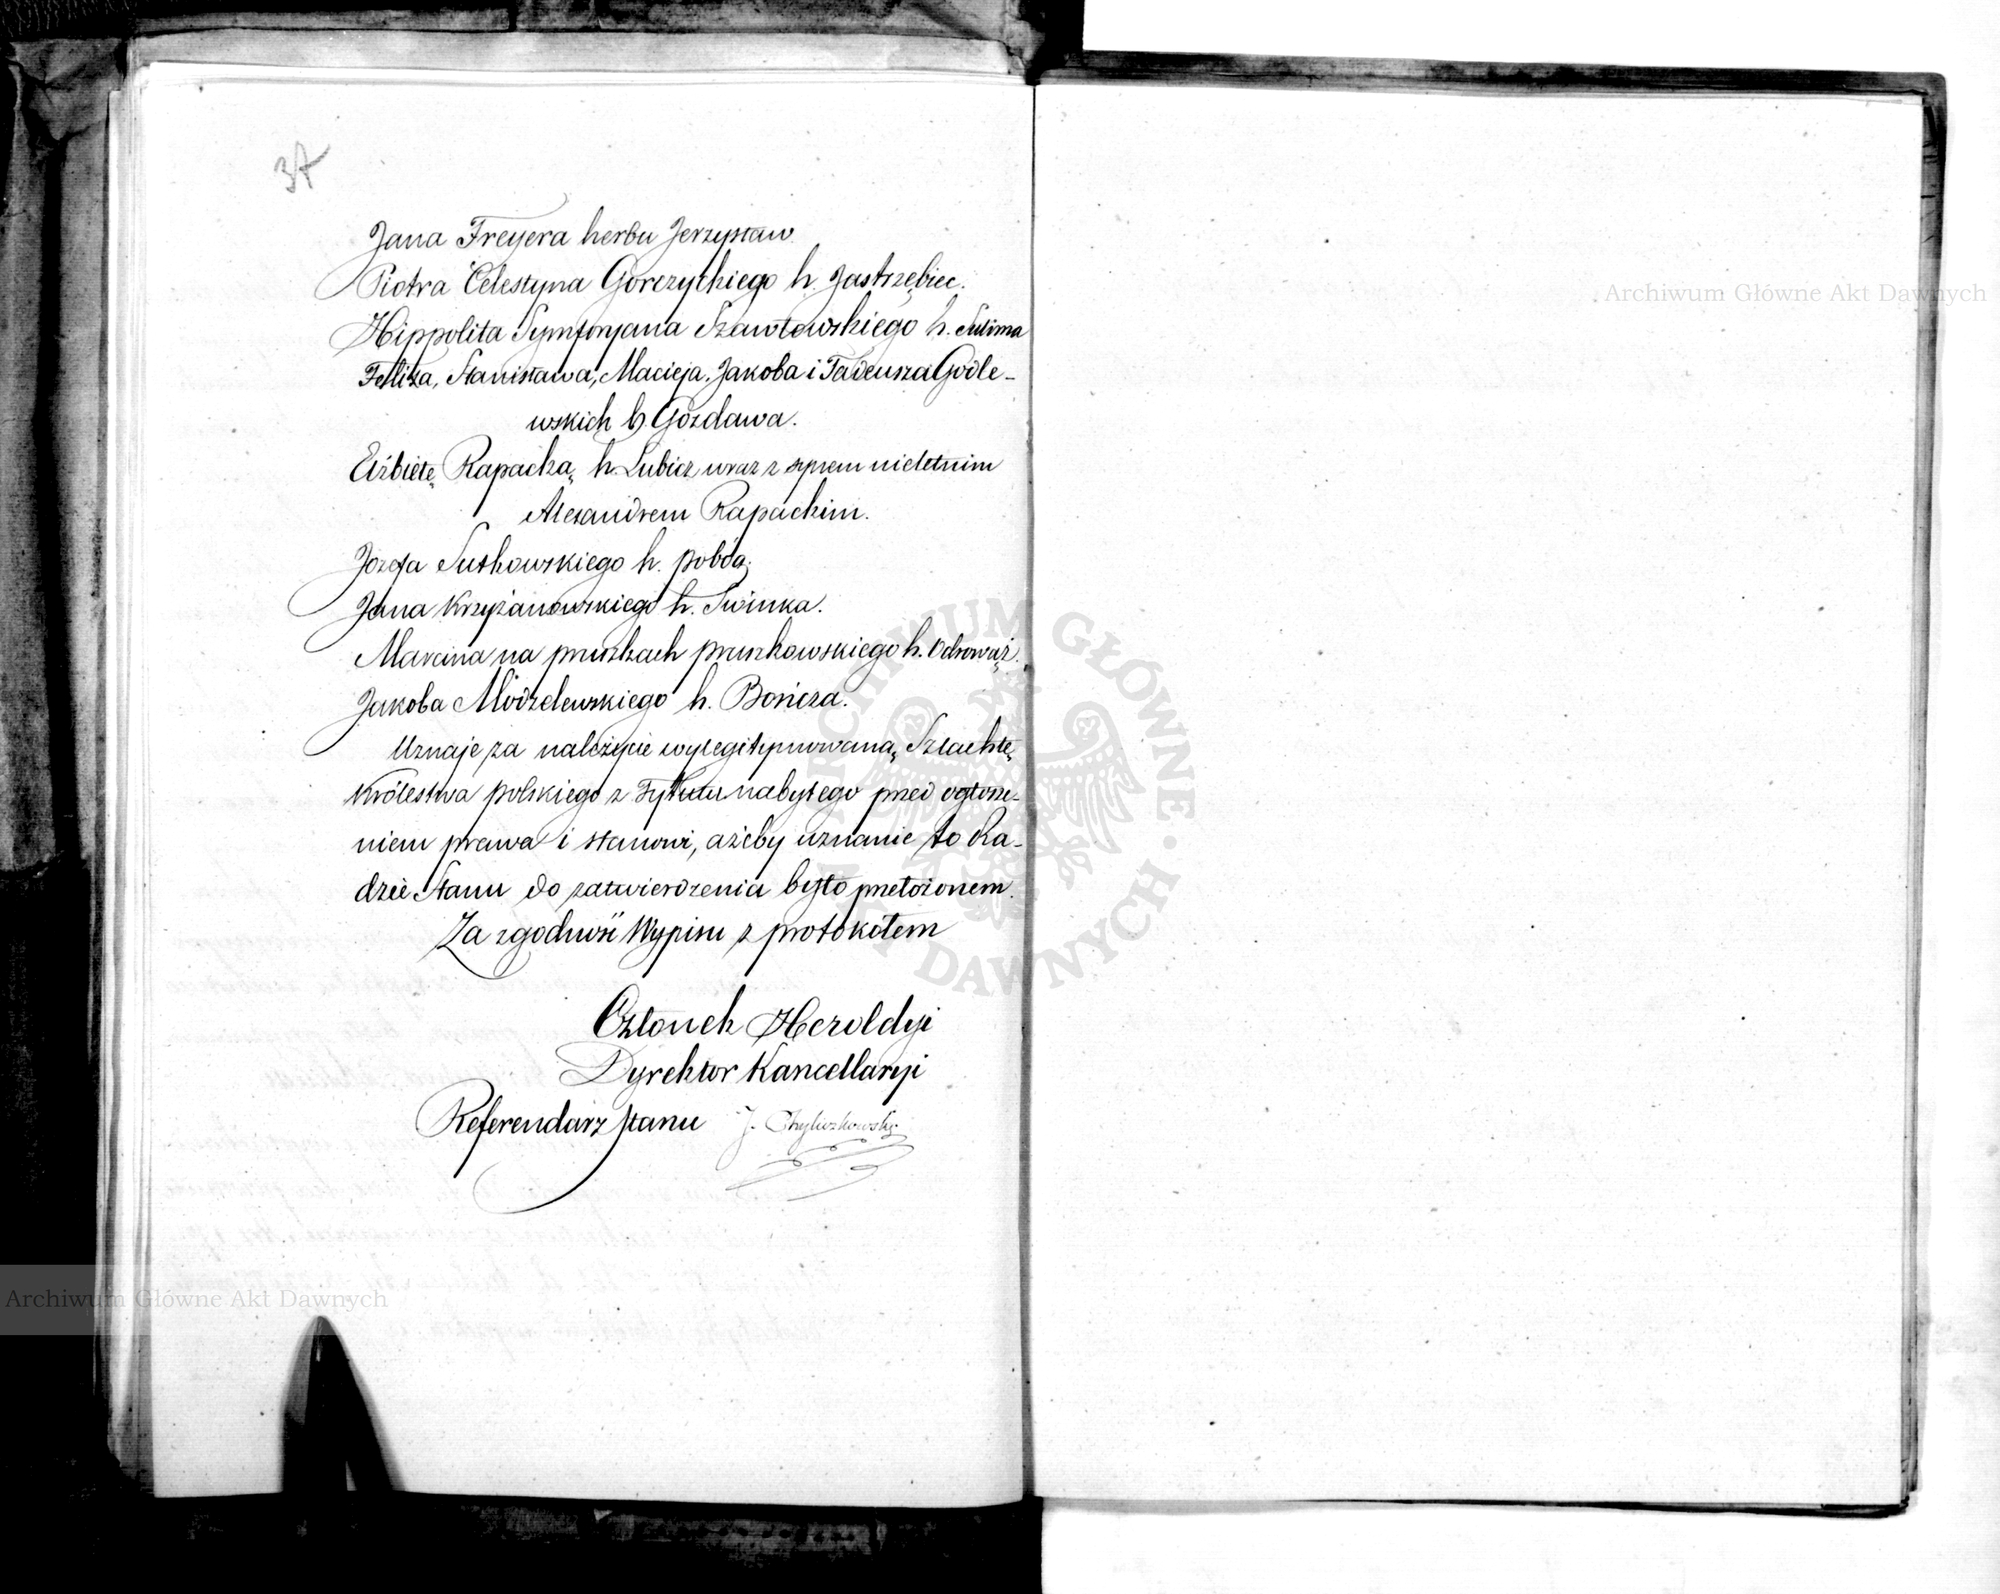 37
Jana Freyera herbu Jerzysław
Piotra Celestyna Gorczyckiego h. Jastrzębiec.
Hippolita Symforyana Szawłowskiego h. Sulima
Felixa, Stanisława, Macieja, Jakoba i Tadeusza Godle-
wskich h. Gozdawa.
Elżbietę Rapacką h. Lubicz wraz z synem nieletnim
Alexandrem Rapackim.
Józefa Sutkowskiego h. pobóg
Jana Krzyżanowskiego h. Swinka.
Marcina na pruszkach pruszkowskiego h. Odrowąż.
Jakoba Modzelewskiego h. Bończa.
Uznaje za należycie wylegitymowaną Szlachtę
Królestwa polskiego z tytułu nabytego przed ogłosze-
niem prawa i stanowi, ażeby uznanie to Ra-
dzie Stanu do zatwierdzenia było przełożonem.
Za zgodność Wypisu z protokołem
Członek Heroldyi
Dyrektor Kancellaryi
Referendarz stanu J. Chyliczkowski
Archiwum Główne Akt Dawnych
Archiwum Główne Akt Dawnych
ARCHIWUM GŁÓWNE AKT DAWNYCH